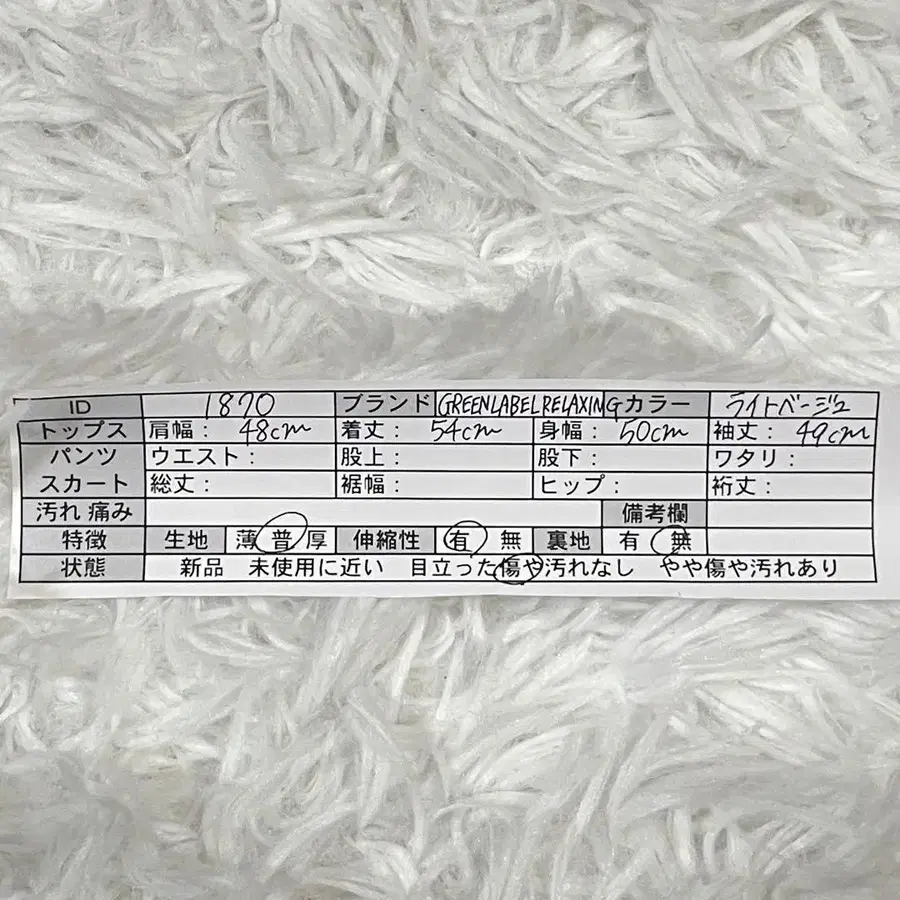 ID 1870 ブランド GREENLABEL RELAXING カラー ライトベージュ
トップス 肩幅： 48cm 着丈： 54cm 身幅： 50cm 袖丈： 49cm
パンツ ウエスト： 股上： 股下： ワタリ：
スカート 総丈： 裾幅： ヒップ： 裄丈：
汚れ 痛み 備考欄
特徴 生地 薄 普 厚 伸縮性 有 無 裏地 有 無
状態 新品 未使用に近い 目立った傷や汚れなし やや傷や汚れあり